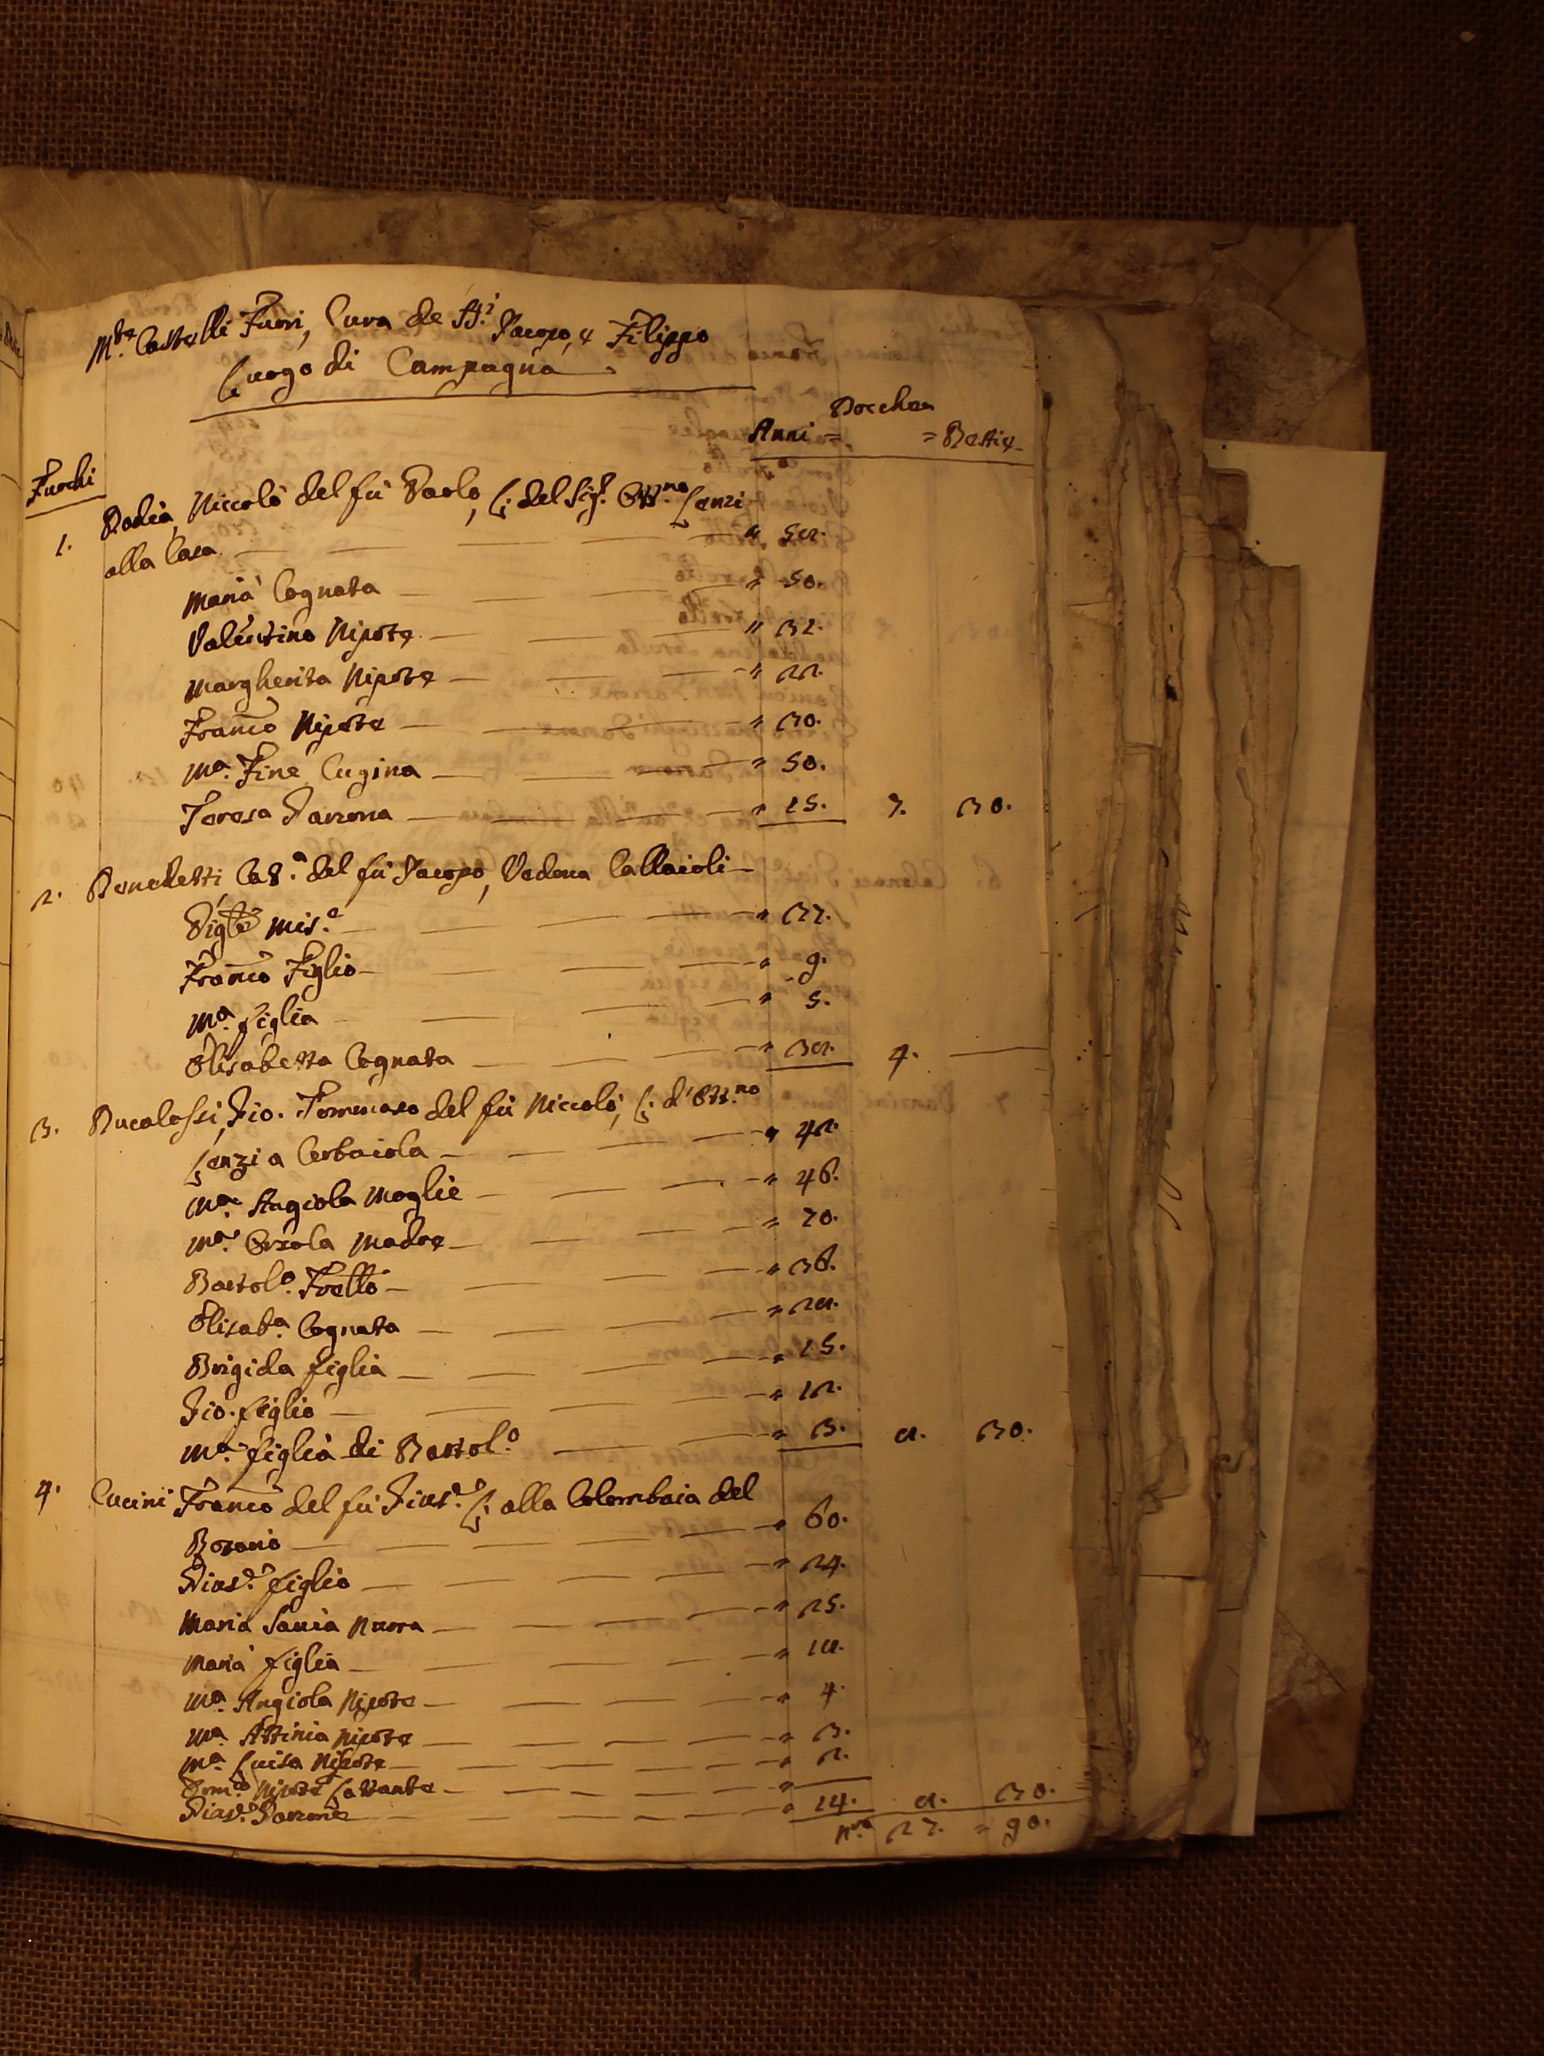 M.te Castelli Fuori, Cura de SS.i Jacopo, e Filippo
Luogo di Campagna
Bocche
Anni = = Bestie
Fuochi
1. Badia, Niccolò del fù Paolo, L: del Sig.r Ott.no Lenzi
alla Casa " 58.
Maria Cognata " 50.
Valentino Nipote " 32.
Margherita Nipote " 22.
Fran.co Nipote " 30.
M.a Fine Cugina " 50.
Teresa Garzona " 15. 7. 30.
2. Benedetti, Cat.a del fù Jacopo, Vedova Callaioli
Pig.le Mis.e " 37.
Fran.co Figlio " 9.
M.a figlia " 5.
Elisabetta Cognata " 38. 4.
3. Bucalossi, Gio. Tommaso del fù Niccolò, L: d'Ott.no
Lenzi a Cerbaiola " 42.
M.a Angiola Moglie " 46.
M.a Orsola Madre " 70.
Bartol.o Frello " 36.
Elisab.a Cognata " 28.
Brigida figlia " 15.
Gio. figlio " 12.
M.a figlia di Bartol.o " 3. 8. 30.
4. Cucini Fran.co del fù Gius.e L: alla Colombaia del
" 60.
Gius.e figlio " 24.
Maria Sauia Nuora " 25.
Maria figlia " 18.
M.a Angiola Nipote " 4.
M.a Attinia Nipote " 3.
M.a Luisa Nipote " 2.
Dom.co Nipote Lattante "
Gius.e Garzone " 14. 8. 30.
N.ro 27. = 90.